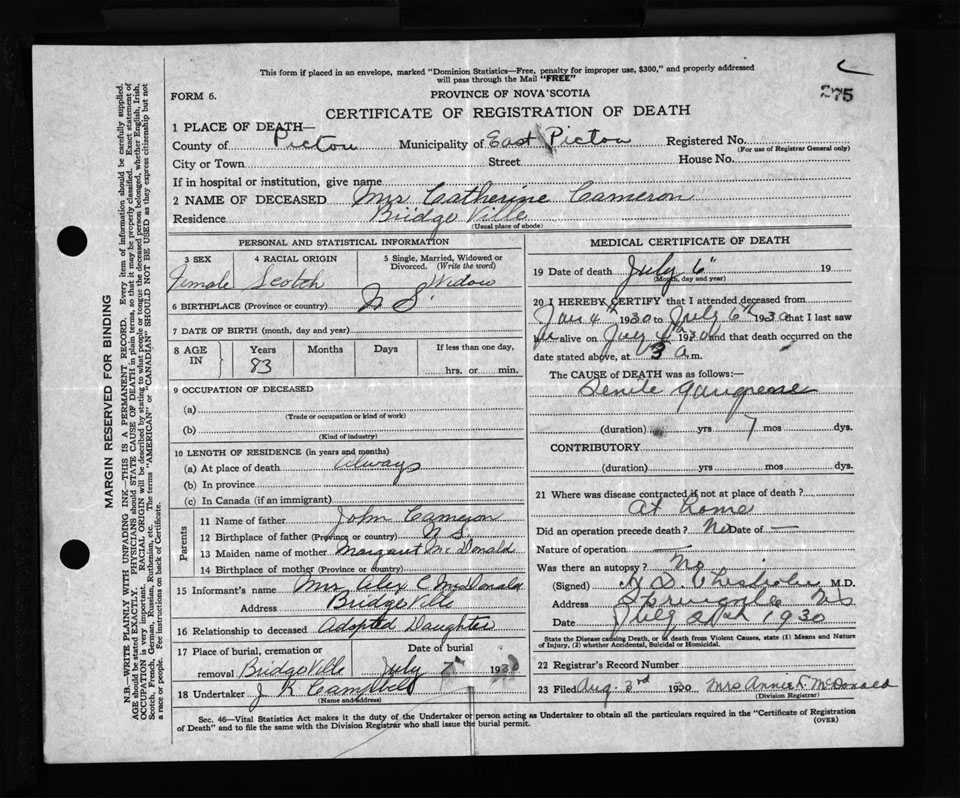 This form if placed in an envelope, marked "Dominion Statistics—Free, penalty for improper use, $300," and properly addressed
will pass through the Mail "FREE"
FORM 6.
PROVINCE OF NOVA SCOTIA
275
CERTIFICATE OF REGISTRATION OF DEATH
1 PLACE OF DEATH—
County of Pictou Municipality of East Pictou Registered No.
(For use of Registrar General only)
City or Town Street House No.
If in hospital or institution, give name
2 NAME OF DECEASED Mrs Catherine Cameron
Residence Bridgeville
(Usual place of abode)
PERSONAL AND STATISTICAL INFORMATION
3 SEX 4 RACIAL ORIGIN 5 Single, Married, Widowed or
Divorced. (Write the word)
Female Scotch Widow
6 BIRTHPLACE (Province or country) N S.
7 DATE OF BIRTH (month, day and year)
8 AGE IN Years Months Days If less than one day,
83 hrs. or min.
9 OCCUPATION OF DECEASED
(a)
(Trade or occupation or kind of work)
(b)
(Kind of industry)
10 LENGTH OF RESIDENCE (in years and months)
(a) At place of death always
(b) In province
(c) In Canada (if an immigrant)
Parents
11 Name of father John Cameron
12 Birthplace of father (Province or country) N S.
13 Maiden name of mother Margaret McDonald
14 Birthplace of mother (Province or country)
15 Informant's name Mrs Alex C McDonald
Address Bridgeville
16 Relationship to deceased Adopted Daughter
17 Place of burial, cremation or Date of burial
removal Bridgeville July 7 1930
18 Undertaker J R Campbell
(Name and address)
MEDICAL CERTIFICATE OF DEATH
19 Date of death July 6" 19
(Month, day and year)
20 I HEREBY CERTIFY that I attended deceased from
Jan 4th 1930 to July 6th 1930 that I last saw
alive on July 1930 and that death occurred on the
date stated above, at 3 a.m.
The CAUSE of DEATH was as follows:—
Senile gangrene
(duration) yrs 7 mos dys.
CONTRIBUTORY
(duration) yrs mos dys.
21 Where was disease contracted if not at place of death?
At home
Did an operation precede death? No Date of —
Nature of operation —
Was there an autopsy? No
(Signed) M.D.
Address NS
Date July 1930
State the Disease causing Death, or in death from Violent Causes, state (1) Means and Nature
of Injury, (2) whether Accidental, Suicidal or Homicidal.
22 Registrar's Record Number
23 Filed Aug 3rd 1930 Mrs Annie McDonald
(Division Registrar)
Sec. 46—Vital Statistics Act makes it the duty of the Undertaker or person acting as Undertaker to obtain all the particulars required in the "Certificate of Registration
of Death" and to file the same with the Division Registrar who shall issue the burial permit.
(OVER)
MARGIN RESERVED FOR BINDING
N.B.—WRITE PLAINLY WITH UNFADING INK—THIS IS A PERMANENT RECORD. Every item of information should be carefully supplied.
AGE should be stated EXACTLY. PHYSICIANS should STATE CAUSE OF DEATH in plain terms, so that it may be properly classified. Exact statement of
OCCUPATION is very important. RACIAL ORIGIN will be described by stating to what people or tongue the deceased person belonged, whether English, Irish,
Scotch, French, German, Russian, Ruthenian, etc. The terms "AMERICAN" or "CANADIAN" SHOULD NOT BE USED as they express citizenship but not
a race or people. See instructions on back of Certificate.